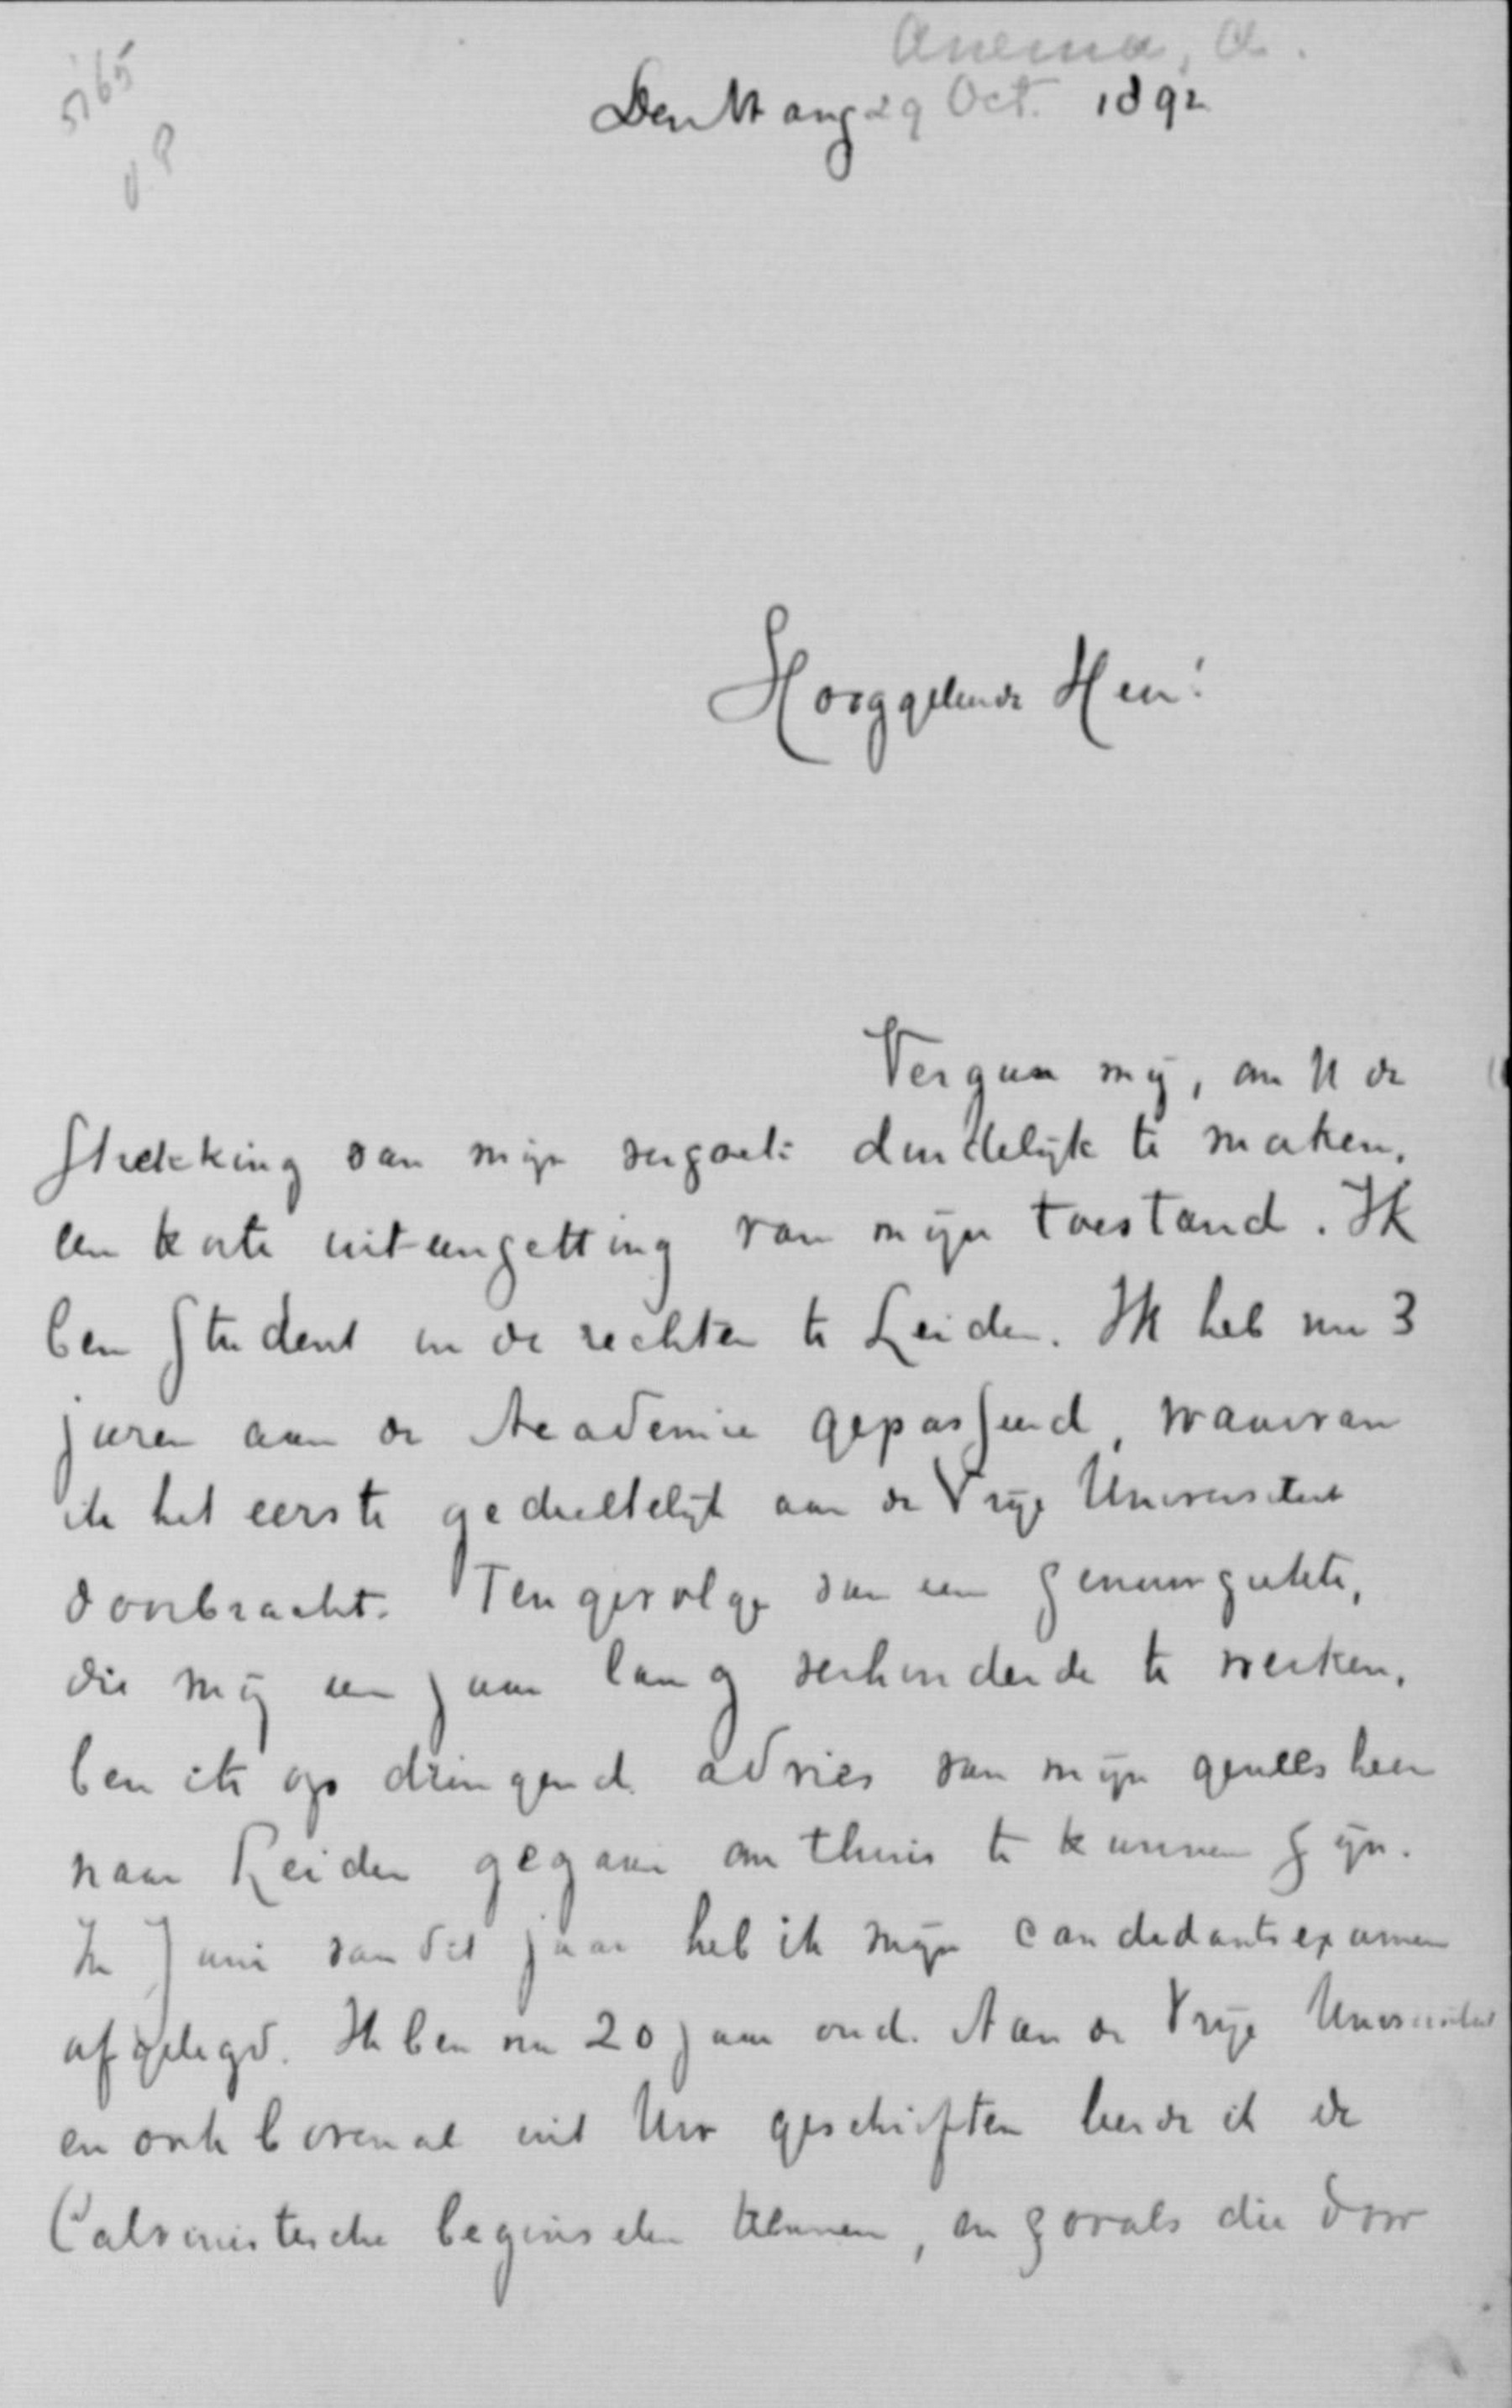 Anema, A.
5165
Den Haag 29 Oct. 1892
Hooggeleerde Heer!
Vergun mij, om U de
strekking van mijn verzoek duidelijk te maken,
een korte uiteenzetting van mijn toestand. Ik
ben student in de rechten te Leiden. Ik heb nu 3
jaren aan de Academie gepasseerd, waarvan
ik het eerste gedeeltelijk aan de Vrije Universiteit
doorbracht. Tengevolge van een zenuwziekte,
die mij een jaar lang verhinderde te werken,
ben ik op dringend advies van mijn geneesheer
naar Leiden gegaan om thuis te kunnen zijn.
In Juni van dit jaar heb ik mijn candidaatsexamen
afgelegd. Ik ben nu 20 jaar oud. Aan de Vrije Universiteit
en ook bovenal uit Uw geschriften leerde ik de
Calvinistische beginselen kennen, en zooals die door